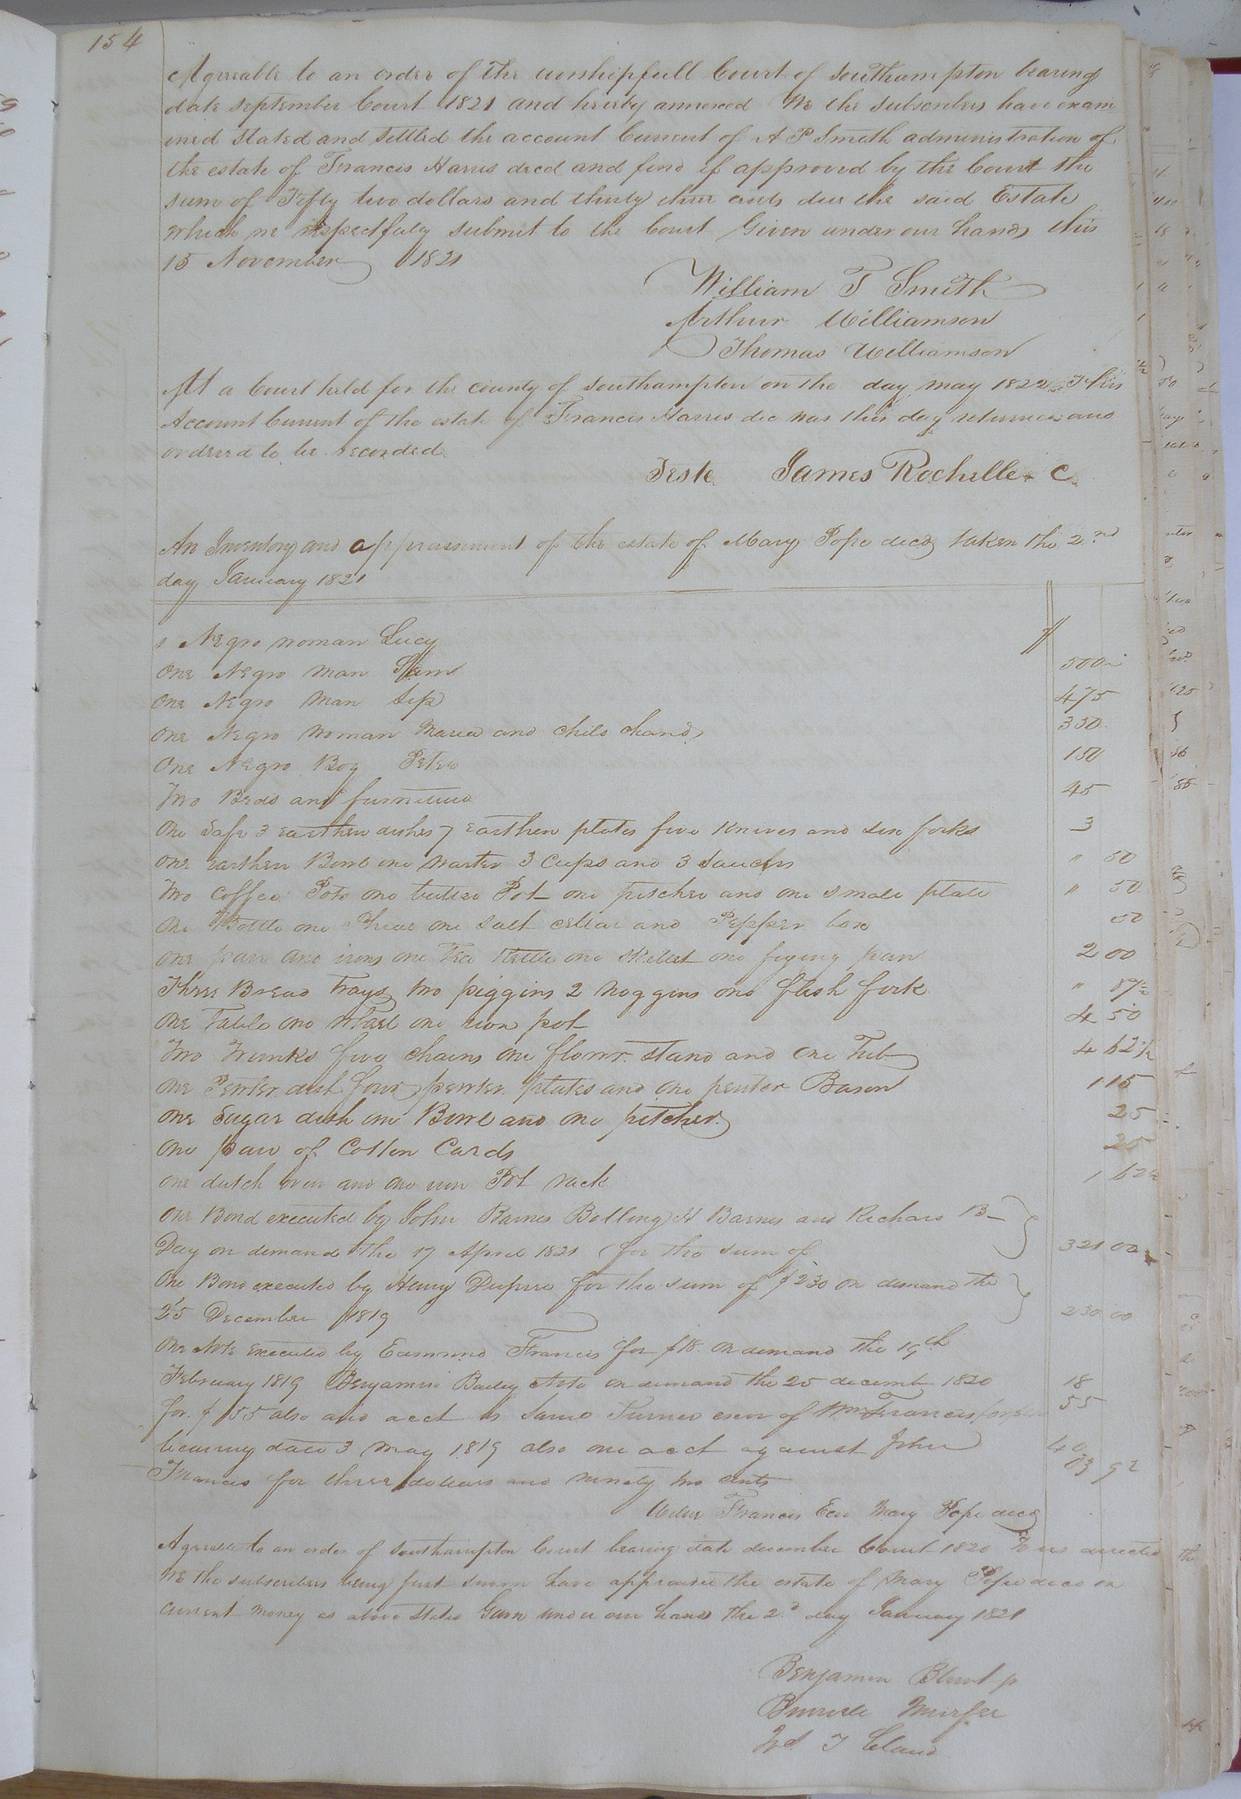 154
Agreeable to an order of the worshipfull Court of Southampton bearing
date September Court 1821 and hereby annexed We the subscribers have exam
ined stated and settled the account Current of A P Smith administration of
the estate of Francis Harris decd and find if approved by the Court the
sum of Fifty two dollars and thirty three cents due the said Estate
which we respectfully submit to the Court Given under our hands this
15 November 1821
William T Smith
Arthur Williamson
Thomas Williamson
At a Court held for the county of Southampton on the day may 1822 This
Account Current of the estate of Francis Harris dec was this day returned and
ordered to be recorded
Teste James Rochelle C
An Inventory and appraisement of the estate of Mary Pope decd taken the 2nd
day January 1821
1 Negro woman Lucy $
One Negro man Sam 500
One Negro man Sip 475
One Negro woman Maria and child 350
One Negro Boy Peter 150
Two Beds and furniture 45
One Safe 3 earthen dishes 7 earthen plates five Knives and six forks 3
One earthen Bowl one waiter 3 Cups and 3 Saucers " 50
Two Coffee Pots one butter Pot one pitcher and one small plate " 50
One Bottle one one salt cellar and Pepper box 50
One pair and irons one Tea Kettle one skillet one frying pan 2 00
Three Bread Trays two piggins 2 noggins one flesh fork " 87½
One Table one one iron pot 4 50
Two Trunks five chairs one flour stand and one Tub 4 62½
One Pewter dish four pewter plates and one pewter Bason 1 15
One Sugar dish one Bowl and one pitcher 25
One pair of Cotton Cards 25
One dutch oven and one iron Pot rack 1 62½
One Bond executed by John Barnes Bolling H Barnes and Richard B
Day on demand the 17 April 1821 for the sum of 321 00
One Bond executed by Henry Dupree for the sum of $230 on demand the
25 December 1819 230 00
One Note executed by Edmund Francis for $18 on demand the 19th
February 1819 Benjamin Bailey Note on demand the 25 decembr 1820 18
for $55 also and acct vs James Turner exor of Wm Francis 55
bearing date 3 may 1819 also one acct against John 40
Francis for three dollars and ninety two cents 03 92
Francis Exr Mary Pope decd
Agreeable to an order of Southampton Court bearing date december Court 1820 to us directed
We the subscribers being first sworn have appraised the estate of Mary Pope decd in
current money as above stated Given under our hands the 2d day January 1821
Benjamin Blunt jr
Murfee
T Claud